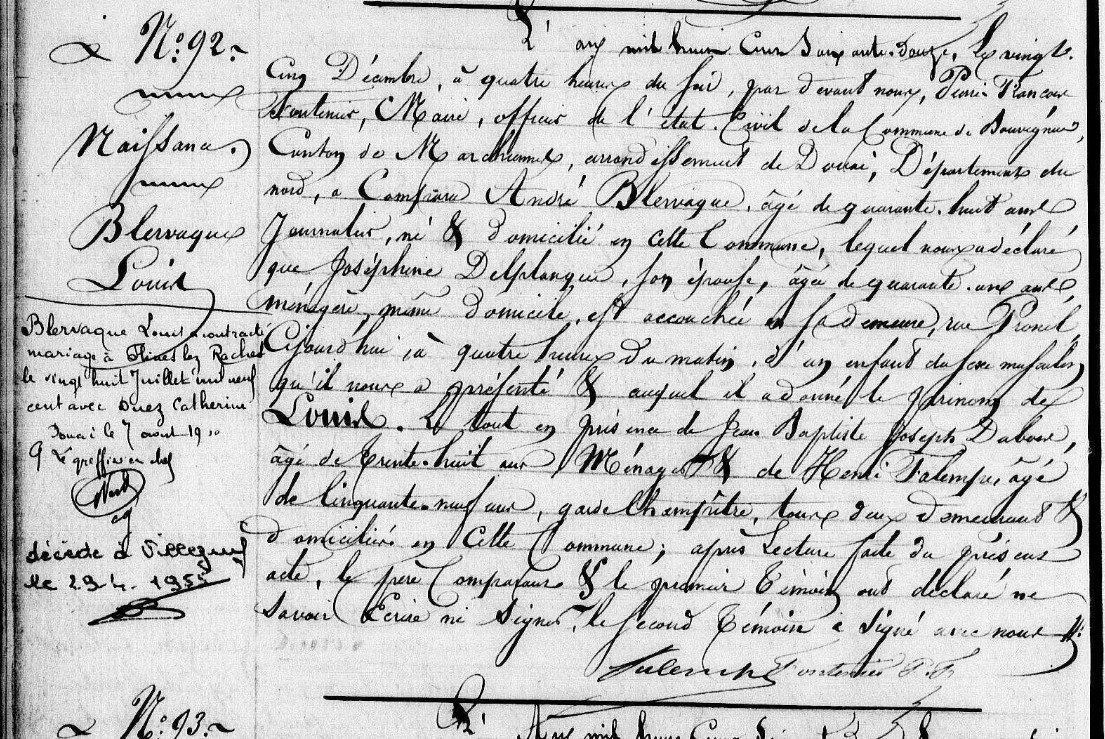 N° 92.
Naissance.
Blervaque
Louis
Blervaque Louis a contracté
mariage à Flines lez Raches
le vingt huit Juillet mil neuf
cent avec Duez Catherine
Douai le 7 août 19
Le greffier en chef
décédé à Villejuif
le 29 4. 1955
L'an mil huit Cent Soixante-Douze, le vingt-
Cinq Décembre, à quatre heures du soir, par devant nous, Henri François
Fontenier, Maire, officier de l'état-Civil de la Commune de Bouvignies,
Canton de Marchiennes, arrondissement de Douai, Département du
nord, a Comparu André Blervaque, âgé de quarante-huit ans
Journalier, né & domicilié en cette Commune, lequel nous a déclaré
que Joséphine Delplanque, son épouse, âgée de quarante-un ans,
ménagère, même domicile, est accouchée en sa demeure, rue
Cejourd'hui, à quatre heures du matin, d'un enfant du sexe masculin
qu'il nous a présenté & auquel il a donné le prénom de
Louis. Le tout en présence de Jean Baptiste Joseph
âgé de trente-huit ans Ménager & de Henri Talempe, âgé
de Cinquante-neuf ans, garde Champêtre, tous deux demeurant &
domiciliés en Cette Commune; après Lecture faite du présent
acte, le père Comparant & le premier témoin ont déclaré ne
savoir Ecrire ni Signer, le second témoin a signé avec nous
Fontenier
N° 93.
L'An mil huit Cent